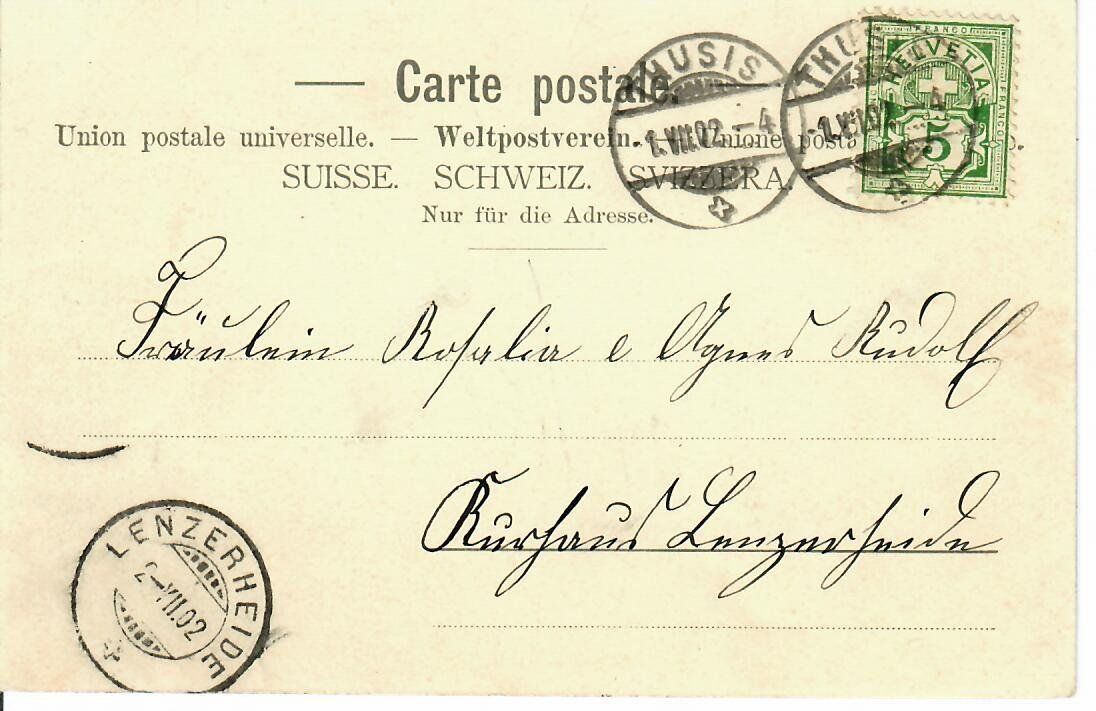 — Carte postale.
Union postale universelle. — Weltpostverein. — Unione posta
SUISSE. SCHWEIZ. SVIZZERA.
Nur für die Adresse.
THUSIS
1.VII.02.–4
THUSIS
-1.VII.02 –4
FRANCO
HELVETIA
FRANCO
5
Fräulein Rosalia e Agnes Rudolf
Kurhaus Lenzerheide
LENZERHEIDE
2–VII.02